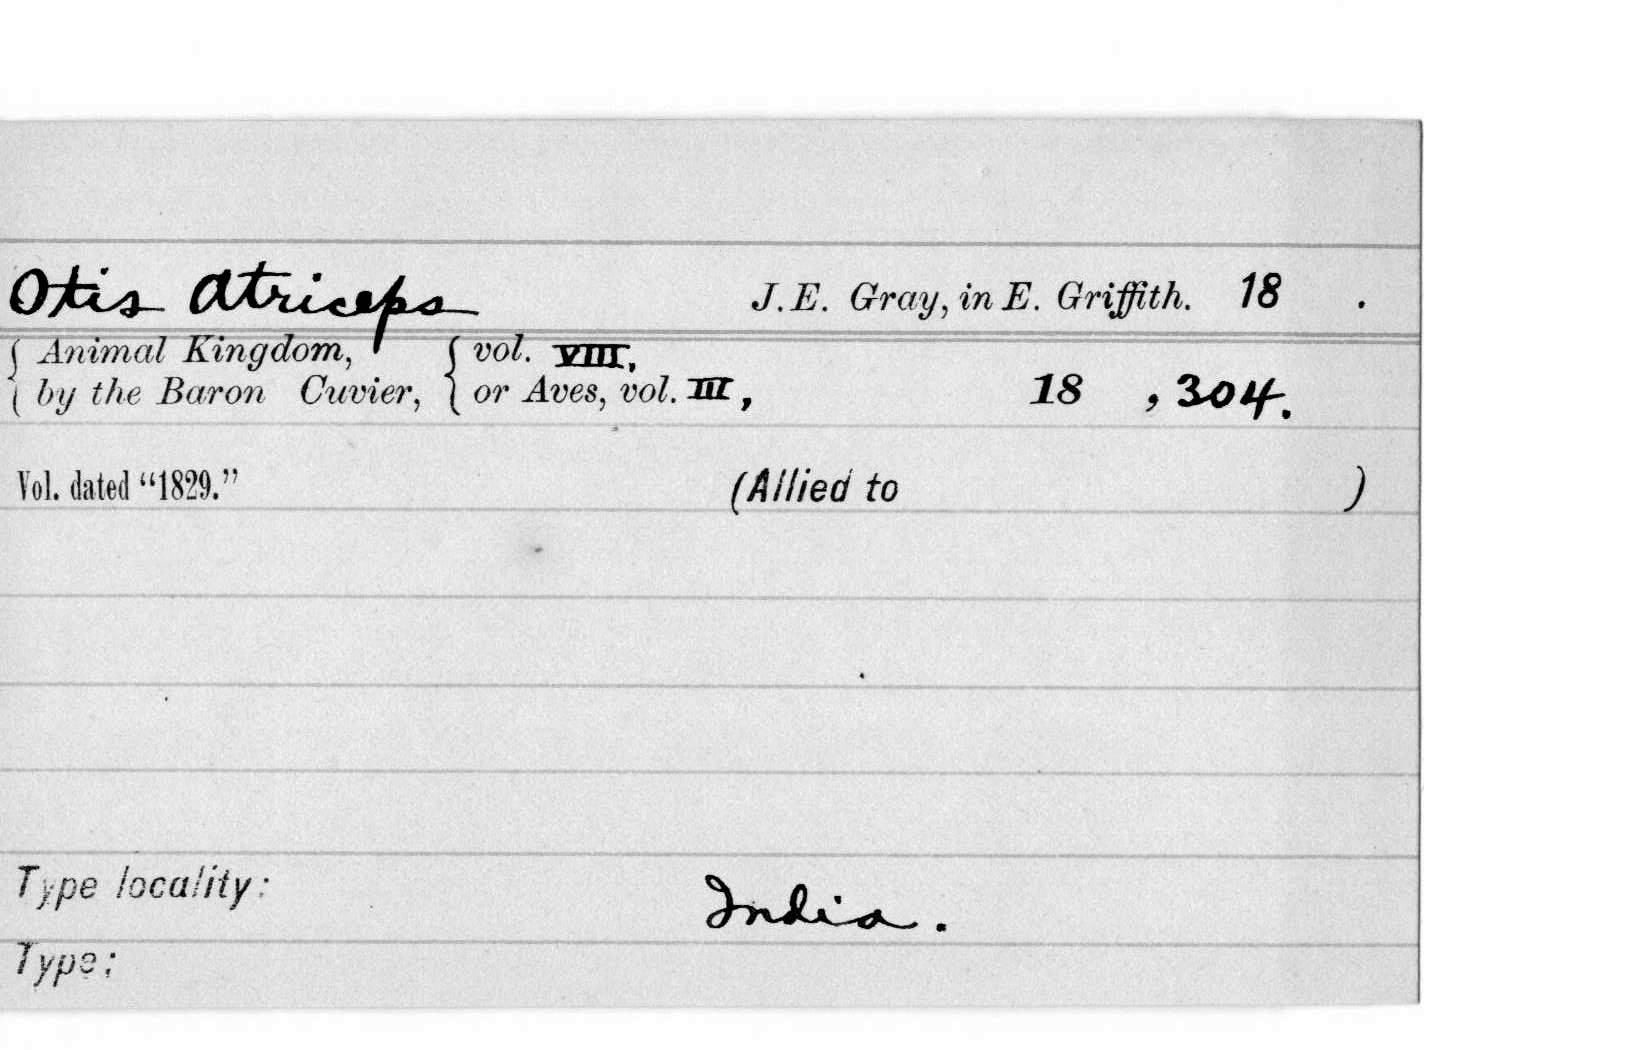 Otis atriceps J.E. Gray, in E. Griffith. 18 .
{ Animal Kingdom, { vol. VIII,
{ by the Baron Cuvier, { or Aves, vol. III, 18 , 304.
Vol. dated “1829.” (Allied to )
Type locality: India.
Type: